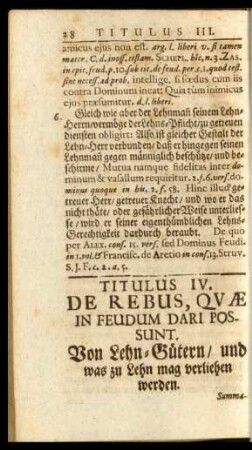 28 TITULUS III.
amicus ejus non est. arg. l. liberi v. si tamen
mater. C. d. inoff. testam. SCHEPL. hic, n. 3. ZAS.
in epit. feud. p. 10. sub tit. de feud. per c. 1. quod test.
sint necess. ad prob. intellige, si fœdus cum iis
contra Dominum ineat: Quia tùm inimicus
ejus præsumitur. d. l. liberi.
6. Gleich wie aber der Lehnmañ seinem Lehn-
Herrn/vermöge der Lehns-Pflicht/zu getreuen
diensten obligirt: Also ist gleicher Gestalt der
Lehn-Herr verbunden/daß er hingegen seinen
Lehnmañ gegen männiglich beschütze/ und be-
schirme/ Mutua namque fidelitas inter do-
minum & vasallum requiritur. 2. f. 6. verf. do-
minus quoque in his. 2. f. 58. Hinc illud: ge-
treuer Herr/ getreuer Knecht/ und wo er das
nicht thäte/ oder gefährlicher Weise unterlies-
se/ wird er seiner eigenthümlichen Lehns-
Gerechtigkeit dardurch beraubt. De quo
per ALEX. cons. 15. vers. sed Dominus Feudi
in 1. vol. & Francisc. de Aretio in cons. 13. Struv.
S. J. F. c. 2. a. 5.
TITULUS IV.
DE REBUS, QVÆ
IN FEUDUM DARI POS-
SUNT.
Von Lehn-Gütern/ und
was zu Lehn mag verliehen
werden.
Summa-